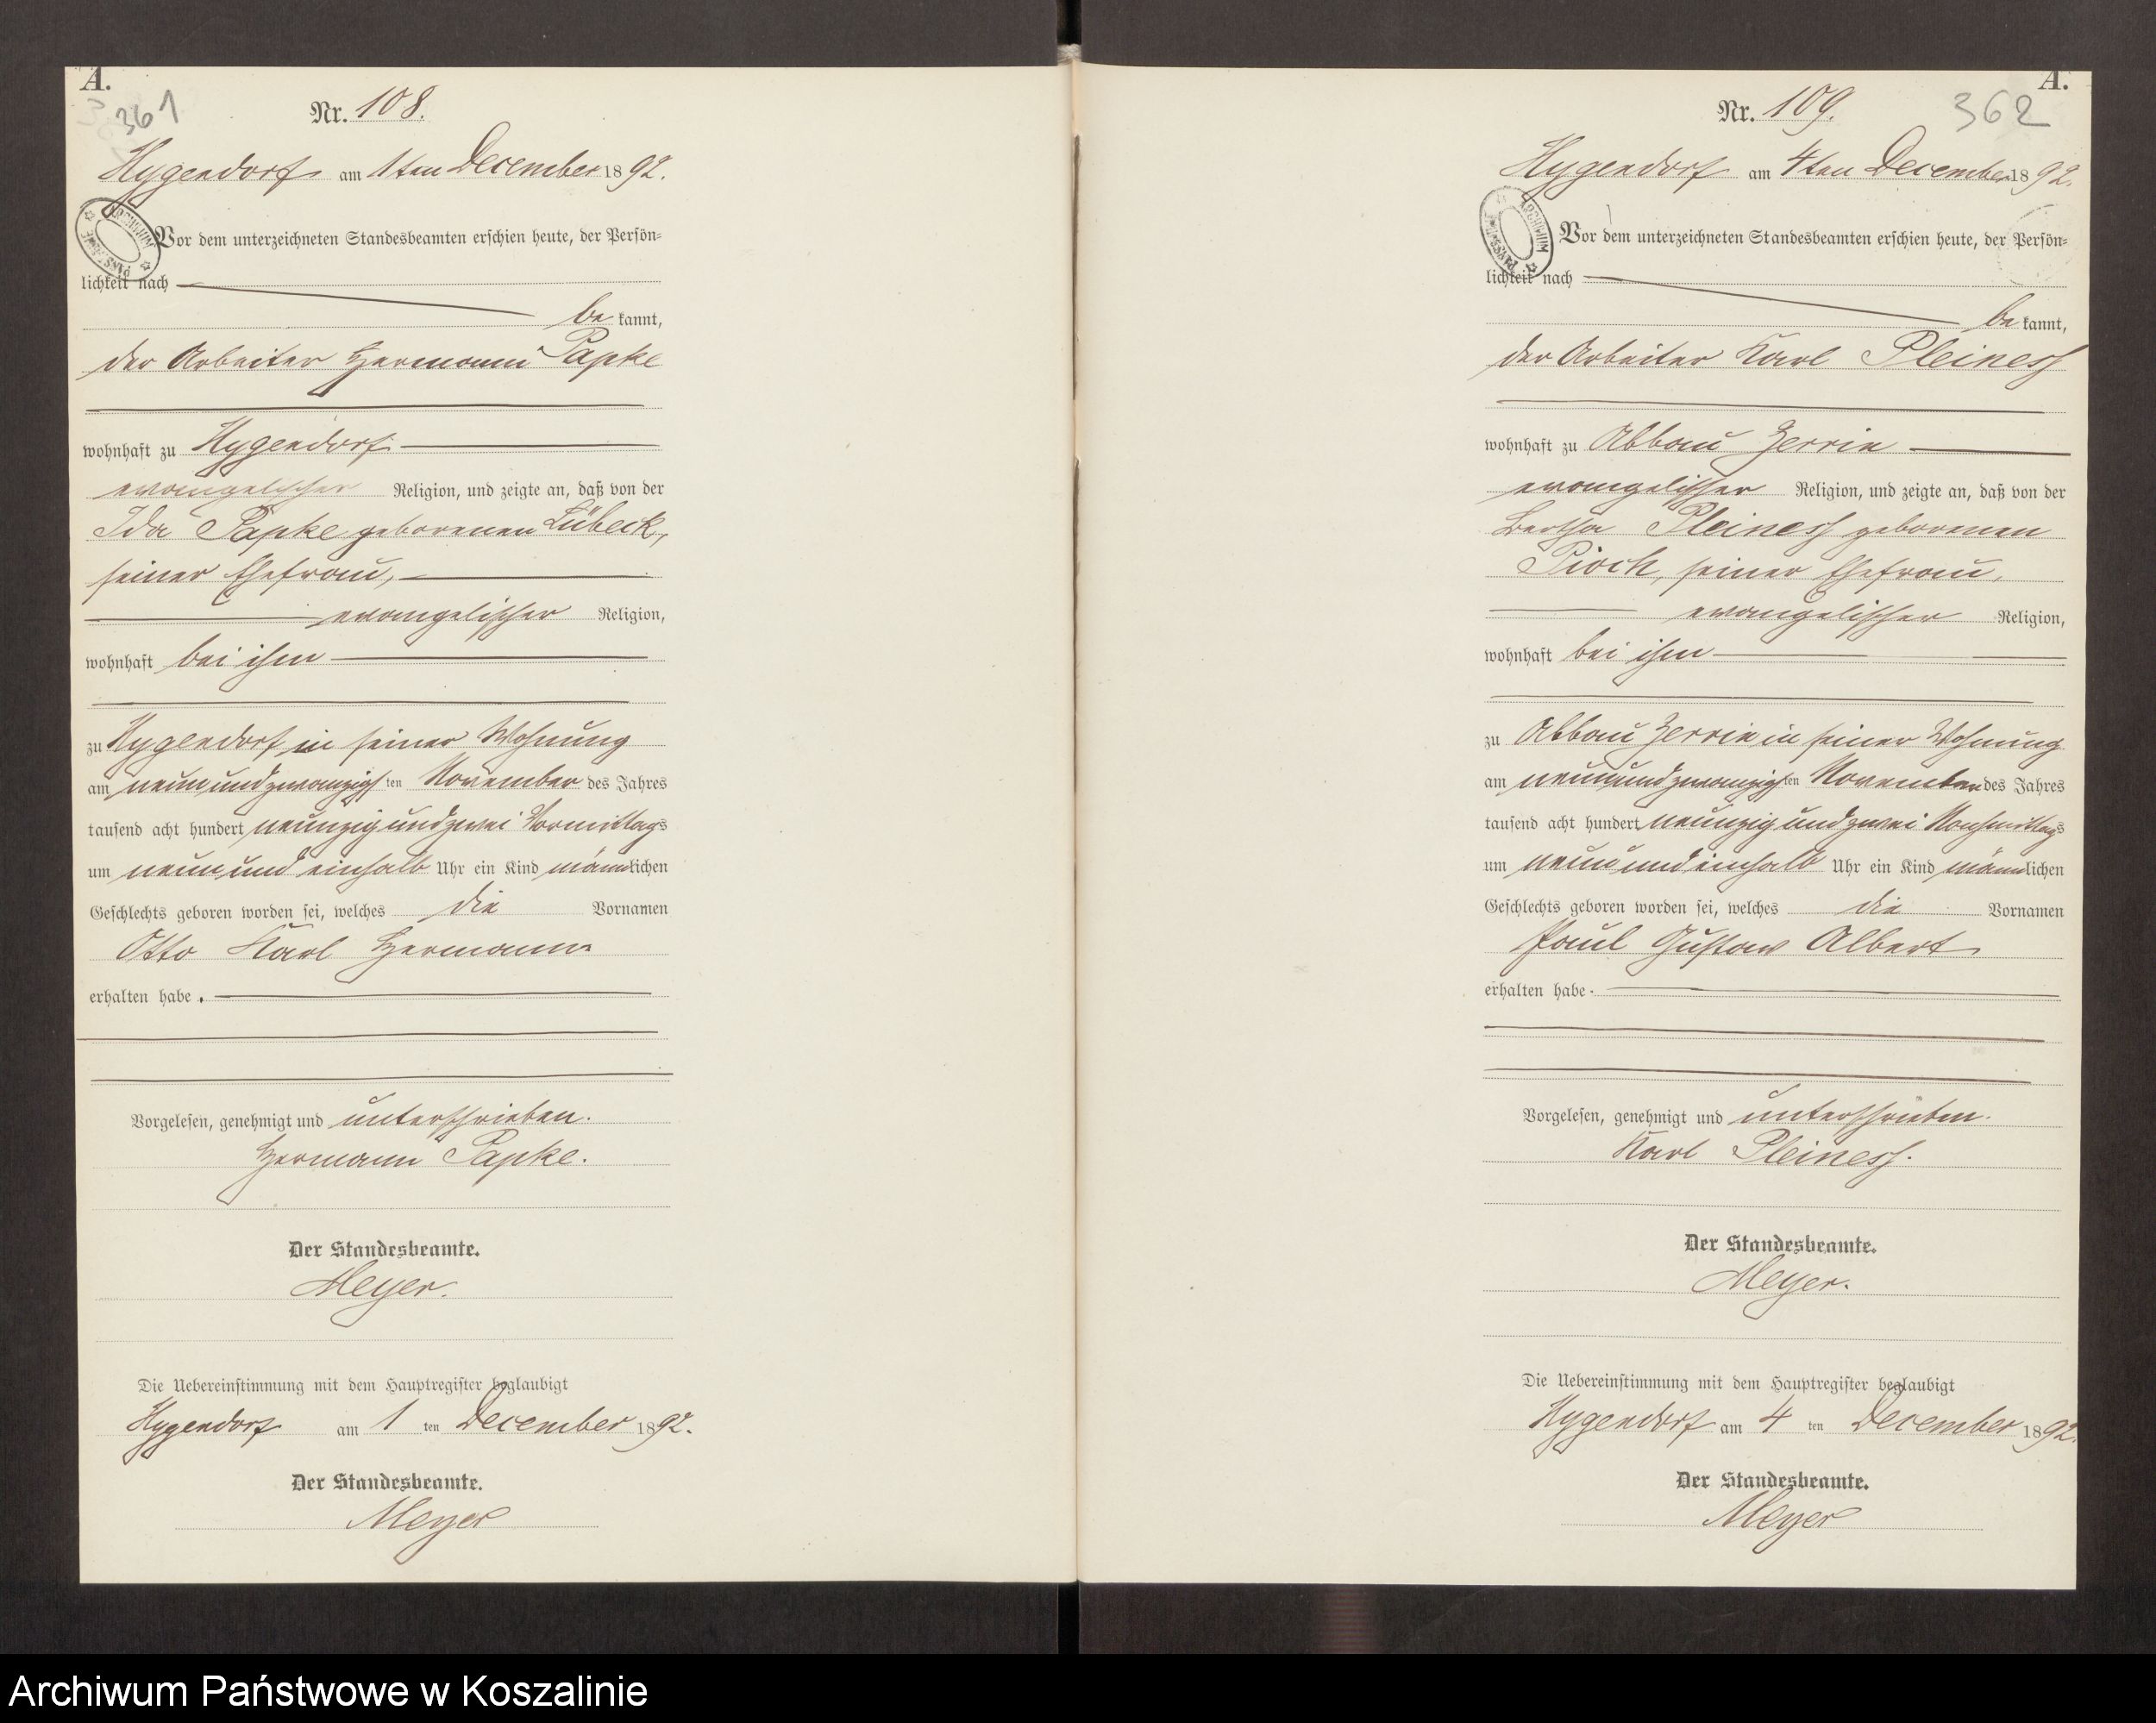 A.
361
Nr. 108.
Hygendorf am 1ten December 1892.
Vor dem unterzeichneten Standesbeamten erschien heute, der Persön-
lichkeit nach
be kannt,
der Arbeiter Hermann Papke
wohnhaft zu Hygendorf
evangelischer Religion, und zeigte an, daß von der
Ida Papke geborenen Lübeck,
seiner Ehefrau,
evangelischer Religion,
wohnhaft bei ihm
zu Hygendorf in seiner Wohnung
am neunundzwanzigsten November des Jahres
tausend acht hundert neunzig und zwei Vormittags
um neun und einhalb Uhr ein Kind männlichen
Geschlechts geboren worden sei, welches die Vornamen
Otto Karl Hermann
erhalten habe.
Vorgelesen, genehmigt und unterschrieben.
Hermann Papke.
Der Standesbeamte.
Meyer.
Die Uebereinstimmung mit dem Hauptregister beglaubigt
Hygendorf am 1 ten December 1892.
Der Standesbeamte.
Meyer
A.
362
Nr. 109.
Hygendorf am 4ten December 1892.
Vor dem unterzeichneten Standesbeamten erschien heute, der Persön-
lichkeit nach
be kannt,
der Arbeiter Karl Pleiness
wohnhaft zu Abbau Zerrin
evangelischer Religion, und zeigte an, daß von der
Bertha Pleiness geborenen
Pioch, seiner Ehefrau,
evangelischer Religion,
wohnhaft bei ihm
zu Abbau Zerrin in seiner Wohnung
am neunundzwanzigsten November des Jahres
tausend acht hundert neunzig und zwei Nachmittags
um neun und einhalb Uhr ein Kind männlichen
Geschlechts geboren worden sei, welches die Vornamen
Paul Gustav Albert
erhalten habe.
Vorgelesen, genehmigt und unterschrieben.
Karl Pleiness.
Der Standesbeamte.
Meyer.
Die Uebereinstimmung mit dem Hauptregister beglaubigt
Hygendorf am 4 ten December 1892.
Der Standesbeamte.
Meyer
Archiwum Państwowe w Koszalinie